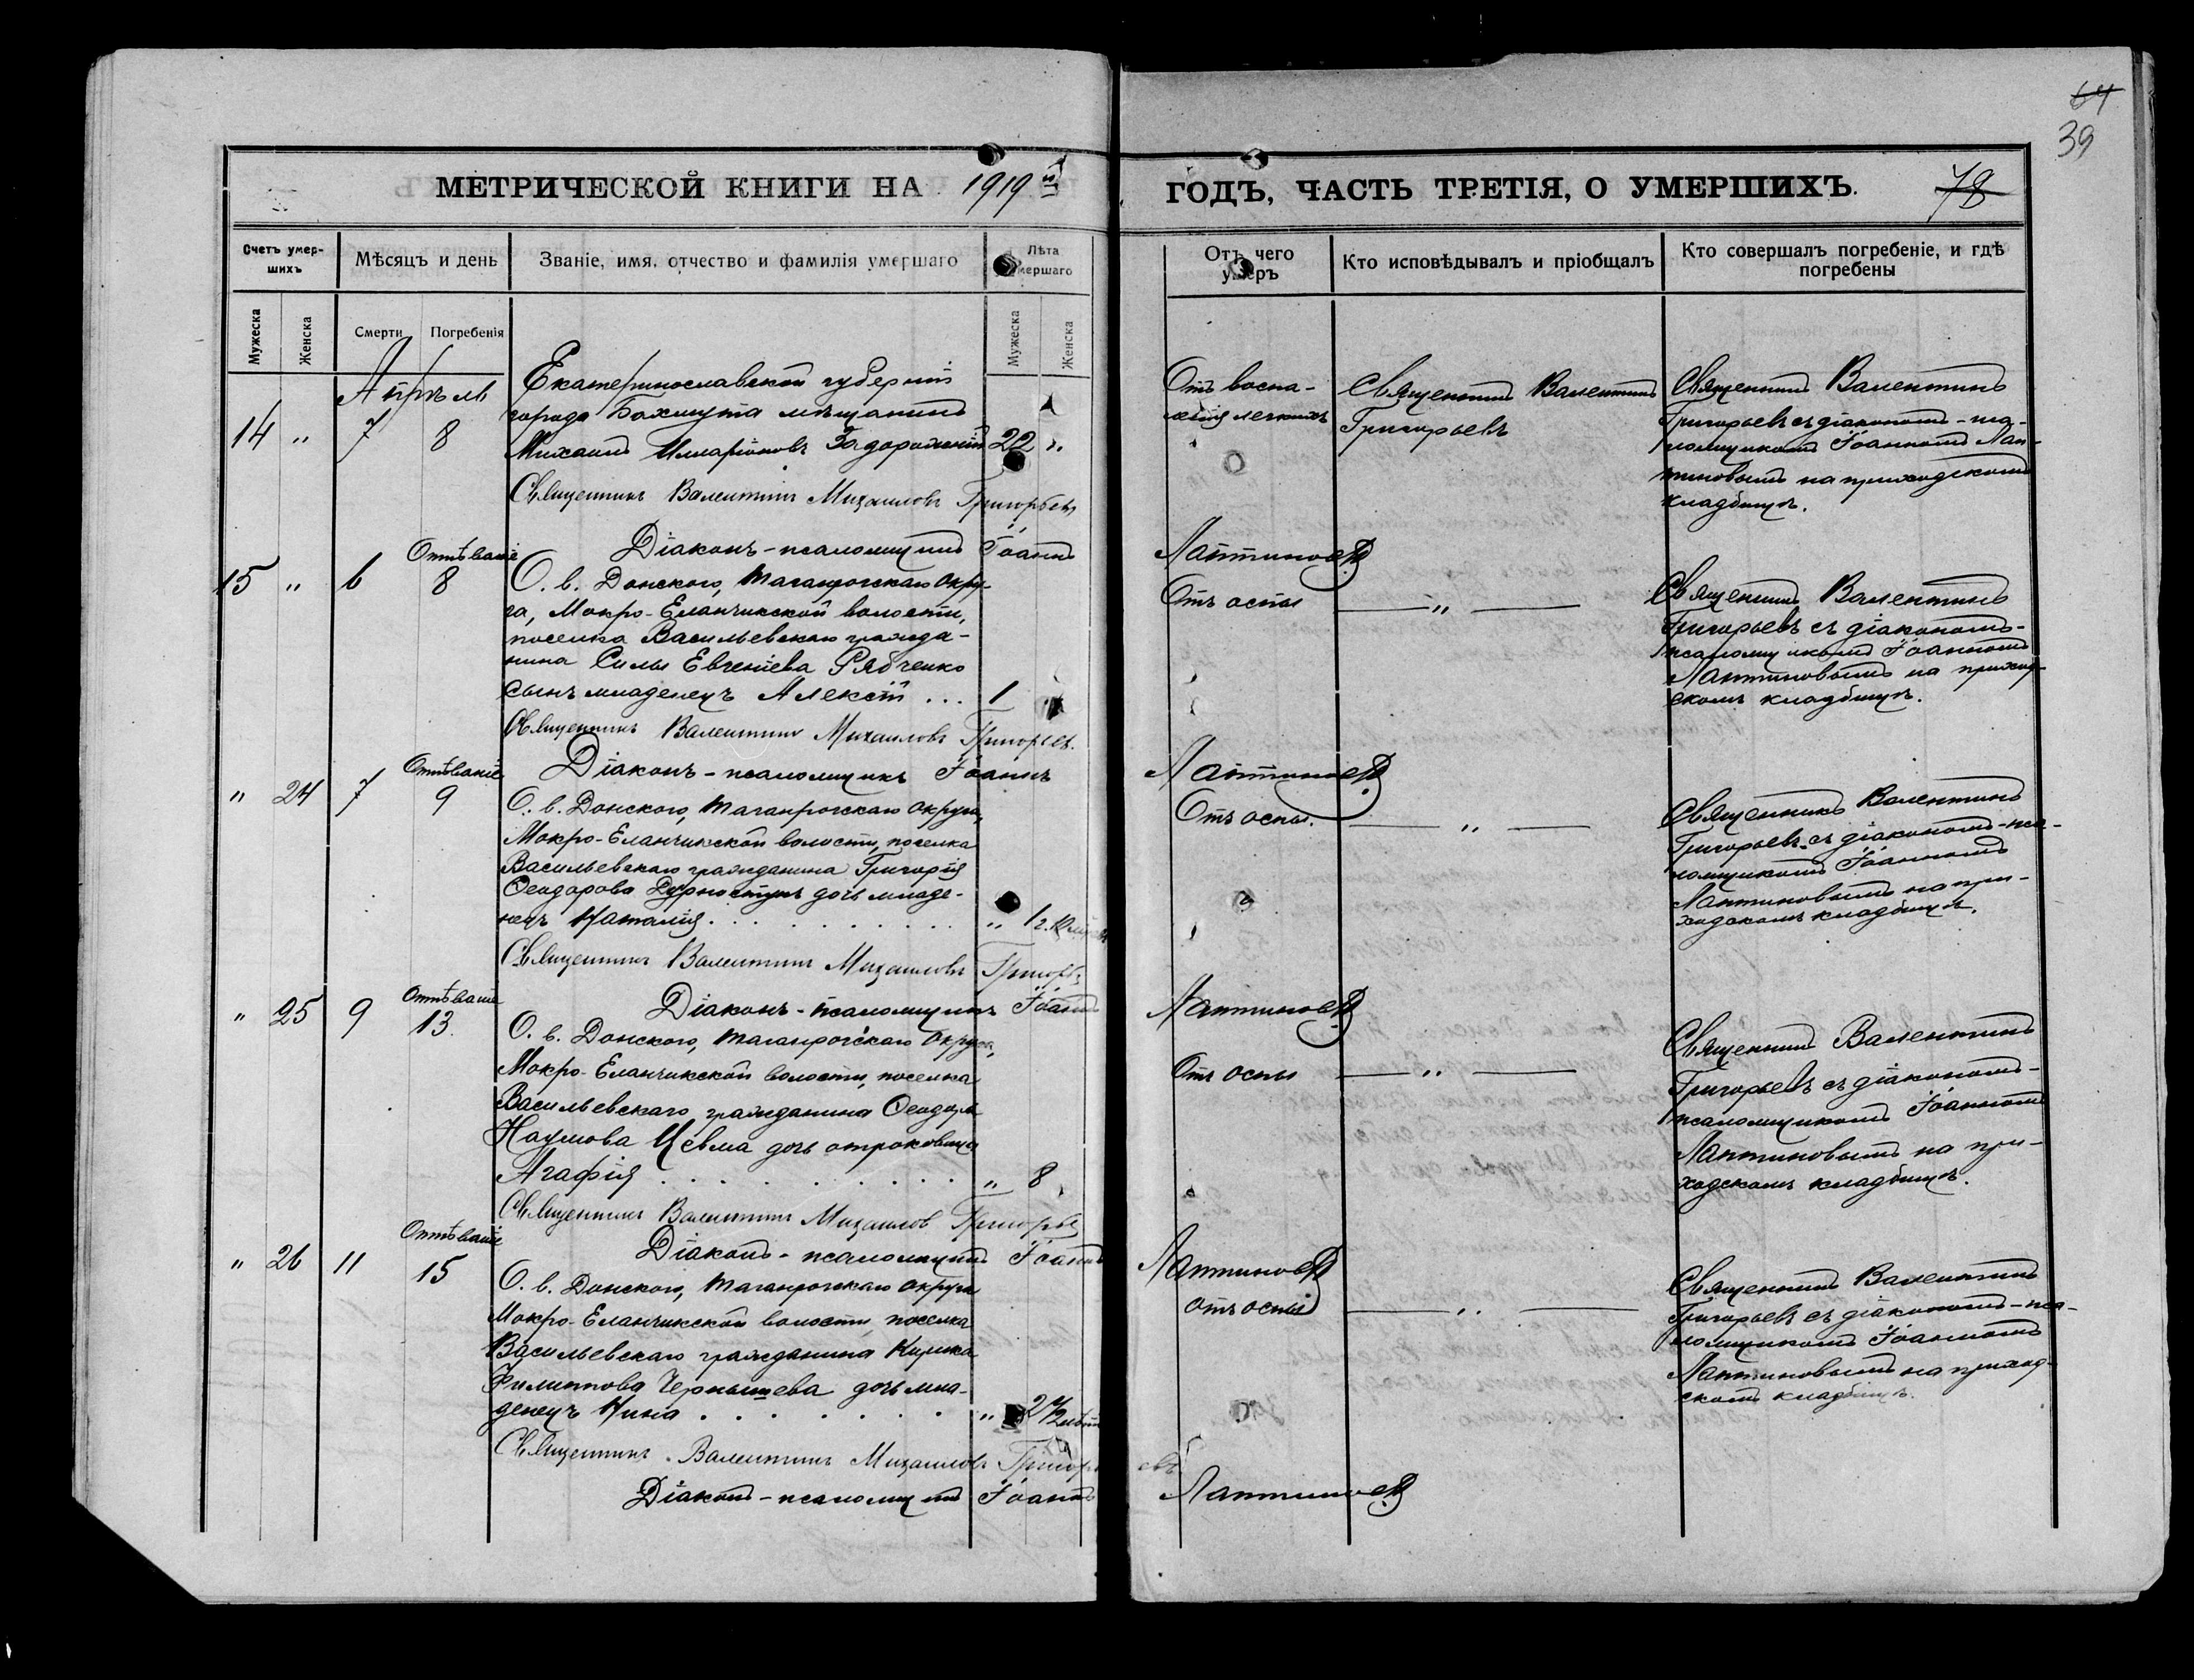 64
39
МЕТРИЧЕСКОЙ КНИГИ НА 1919 й
ГОДЪ, ЧАСТЬ ТРЕТІЯ, О УМЕРШИХЪ.
78
Счетъ умер-
шихъ
Мѣсяцъ и день
Званіе, имя, отчество и фамилія умершаго
Лѣта
умершаго
Отъ чего
умеръ
Кто исповѣдывалъ и пріобщалъ
Кто совершалъ погребеніе, и гдѣ
погребены
Мужеска
Женска
Смерти
Погребенія
Мужеска
Женска
Апрѣль
14 " 7 8
Екатеринославской губерніи
города Бахмута мѣщанинъ
Михаилъ Илларіоновъ Задорожній 22 "
Отъ воспа-
ленія легкихъ
Священникъ Валентинъ
Григорьевъ
Священникъ Валентинъ
Григорьевъ съ діакономъ-пса-
ломщикомъ Іоанномъ Лап-
тиновымъ на приходскомъ
кладбищѣ.
Священникъ Валентинъ Михаиловъ Григорьевъ
Діаконъ-псаломщикъ Іоаннъ Лаптиновъ
15 " 6 Отпѣваніе 8
О. в. Донского, Таганрогскаго окру-
га, Мокро-Еланчикской волости,
поселка Васильевскаго гражда-
нина Силы Евгеніева Рябченко
сынъ младенецъ Алексій ... 1
Отъ оспы
— " —
Священникъ Валентинъ
Григорьевъ съ діакономъ-
псаломщикомъ Іоанномъ
Лаптиновымъ на приход-
скомъ кладбищѣ.
Священникъ Валентинъ Михаиловъ Григорьев.
Діаконъ-псаломщикъ Іоаннъ Лаптиновъ
" 24 7 Отпѣваніе 9
О. в. Донского, Таганрогскаго округа,
Мокро-Еланчикской волости, поселка
Васильевскаго гражданина Григорія
Ѳеодорова дочь младе-
нецъ Наталія . . . " 1 г.
Отъ оспы.
— " —
Священникъ Валентинъ
Григорьевъ съ діакономъ-пса-
ломщикомъ Іоанномъ
Лаптиновымъ на при-
ходскомъ кладбищѣ.
Священникъ Валентинъ Михаиловъ Григорьев
Діаконъ-псаломщикъ Іоаннъ Лаптиновъ
" 25 9 Отпѣваніе 13.
О. в. Донского, Таганрогскаго округа,
Мокро-Еланчикской волости, поселка
Васильевскаго гражданина Ѳеодора
Наумова Цевма дочь отроковица
Агафія . . . " 8
Отъ оспы
— " —
Священникъ Валентинъ
Григорьевъ съ діакономъ-
псаломщикомъ Іоанномъ
Лаптиновымъ на при-
ходскомъ кладбищѣ.
Священникъ Валентинъ Михаилов Григорьев
Діаконъ-псаломщикъ Іоаннъ Лаптиновъ
" 26 11 Отпѣваніе 15
О. в. Донского, Таганрогскаго округа
Мокро-Еланчикской волости, поселка
Васильевскаго гражданина Кирика
Филиппова Чернышева дочь мла-
денецъ Нина . . . " 2 1/2 лѣтъ
отъ оспы
— " —
Священникъ Валентинъ
Григорьевъ съ діакономъ-пса-
ломщикомъ Іоанномъ
Лаптиновымъ на приход-
скомъ кладбищѣ.
Священникъ Валентинъ Михаиловъ Григорьевъ
Діаконъ-псаломщикъ Іоаннъ Лаптиновъ